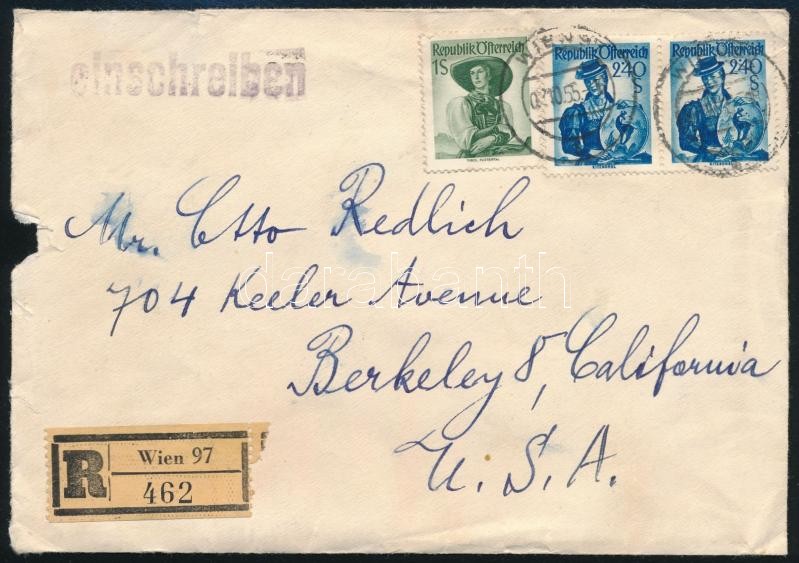 einschreiben
Republik Österreich
1S
TIROL, PUSTERTAL
Republik Österreich
2.40
S
KITZBÜHEL
Republik Österreich
2.40
S
KITZBÜHEL
WIEN
10.55
Mr. Otto Redlich
704 Keeler Avenue
Berkeley 8, California
U. S. A.
R
Wien 97
462
darabanth